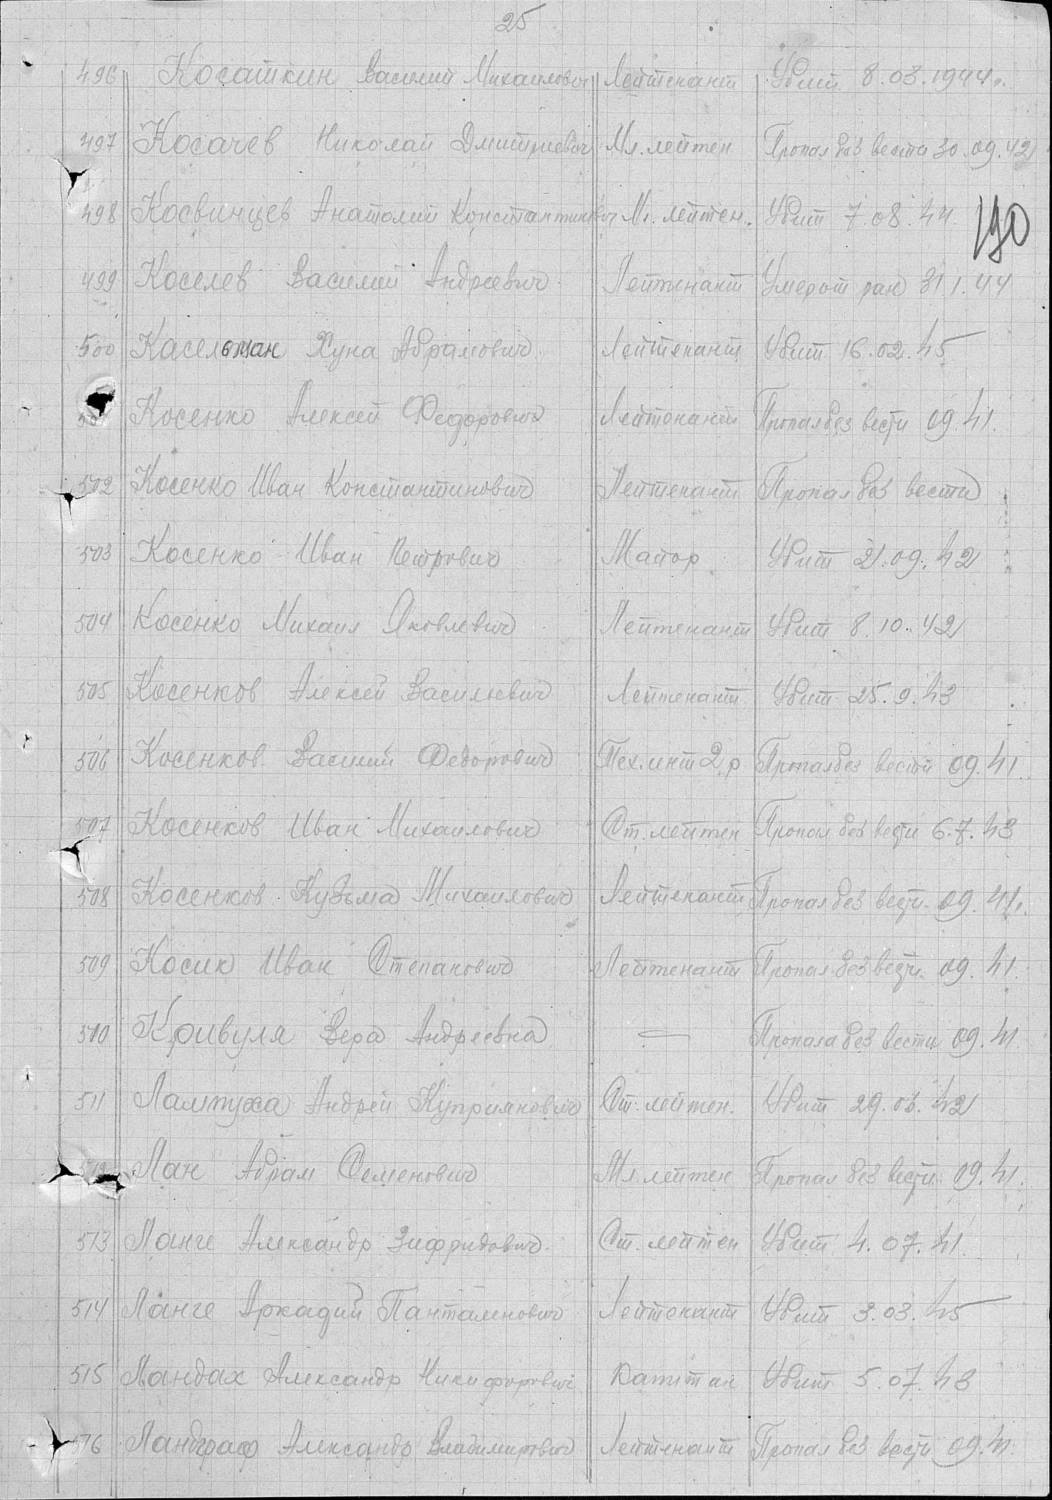 25
496 Косаткин Василий Михайлович Лейтенант Убит 8.03.1944г.
497 Косачев Николай Дмитриевич Мл. лейтен Пропал без вести 30.09.42
190
498 Косвинцев Анатолий Константинович Мл. лейтен. Убит 7.08.44
499 Коселев Василий Андреевич Лейтенант Умер от ран 31.1.44
500 Касельман Хуна Абрамович Лейтенант Убит 16.02.45
Косенко Алексей Федорович Лейтенант Пропал без вести 09.41.
502 Косенко Иван Константинович Лейтенант Пропал без вести
503 Косенко Иван Петрович Майор Убит 21.09.42
504 Косенко Михаил Яковлевич Лейтенант Убит 8.10.42
505 Косенков Алексей Василиевич Лейтенант Убит 25.9.43
506 Косенков Василий Федорович Тех.инт 2 р Пропал без вести 09.41.
507 Косенков Иван Михайлович Ст. лейтен Пропал без вести 6.7.43
508 Косенков Кузьма Михайлович Лейтенант Пропал без вести 09.41.
509 Косик Иван Степанович Лейтенант Пропал без вести 09.41.
510 Кривуля Вера Андреевна — Пропала без вести 09.41
511 Лаптуха Андрей Куприянович Ст. лейтен. Убит 29.03.42
Лан Абрам Семенович Мл лейтен Пропал без вести 09.41.
513 Ланге Александр Зифридович Ст. лейтен Убит 4.07.41.
514 Ланге Аркадий Панталенович Лейтенант Убит 3.03.45
515 Ландах Александр Никифорович Капитан Убит 5.07.43
516 Ландграф Александр Владимирович Лейтенант Пропал без вести 09.41.